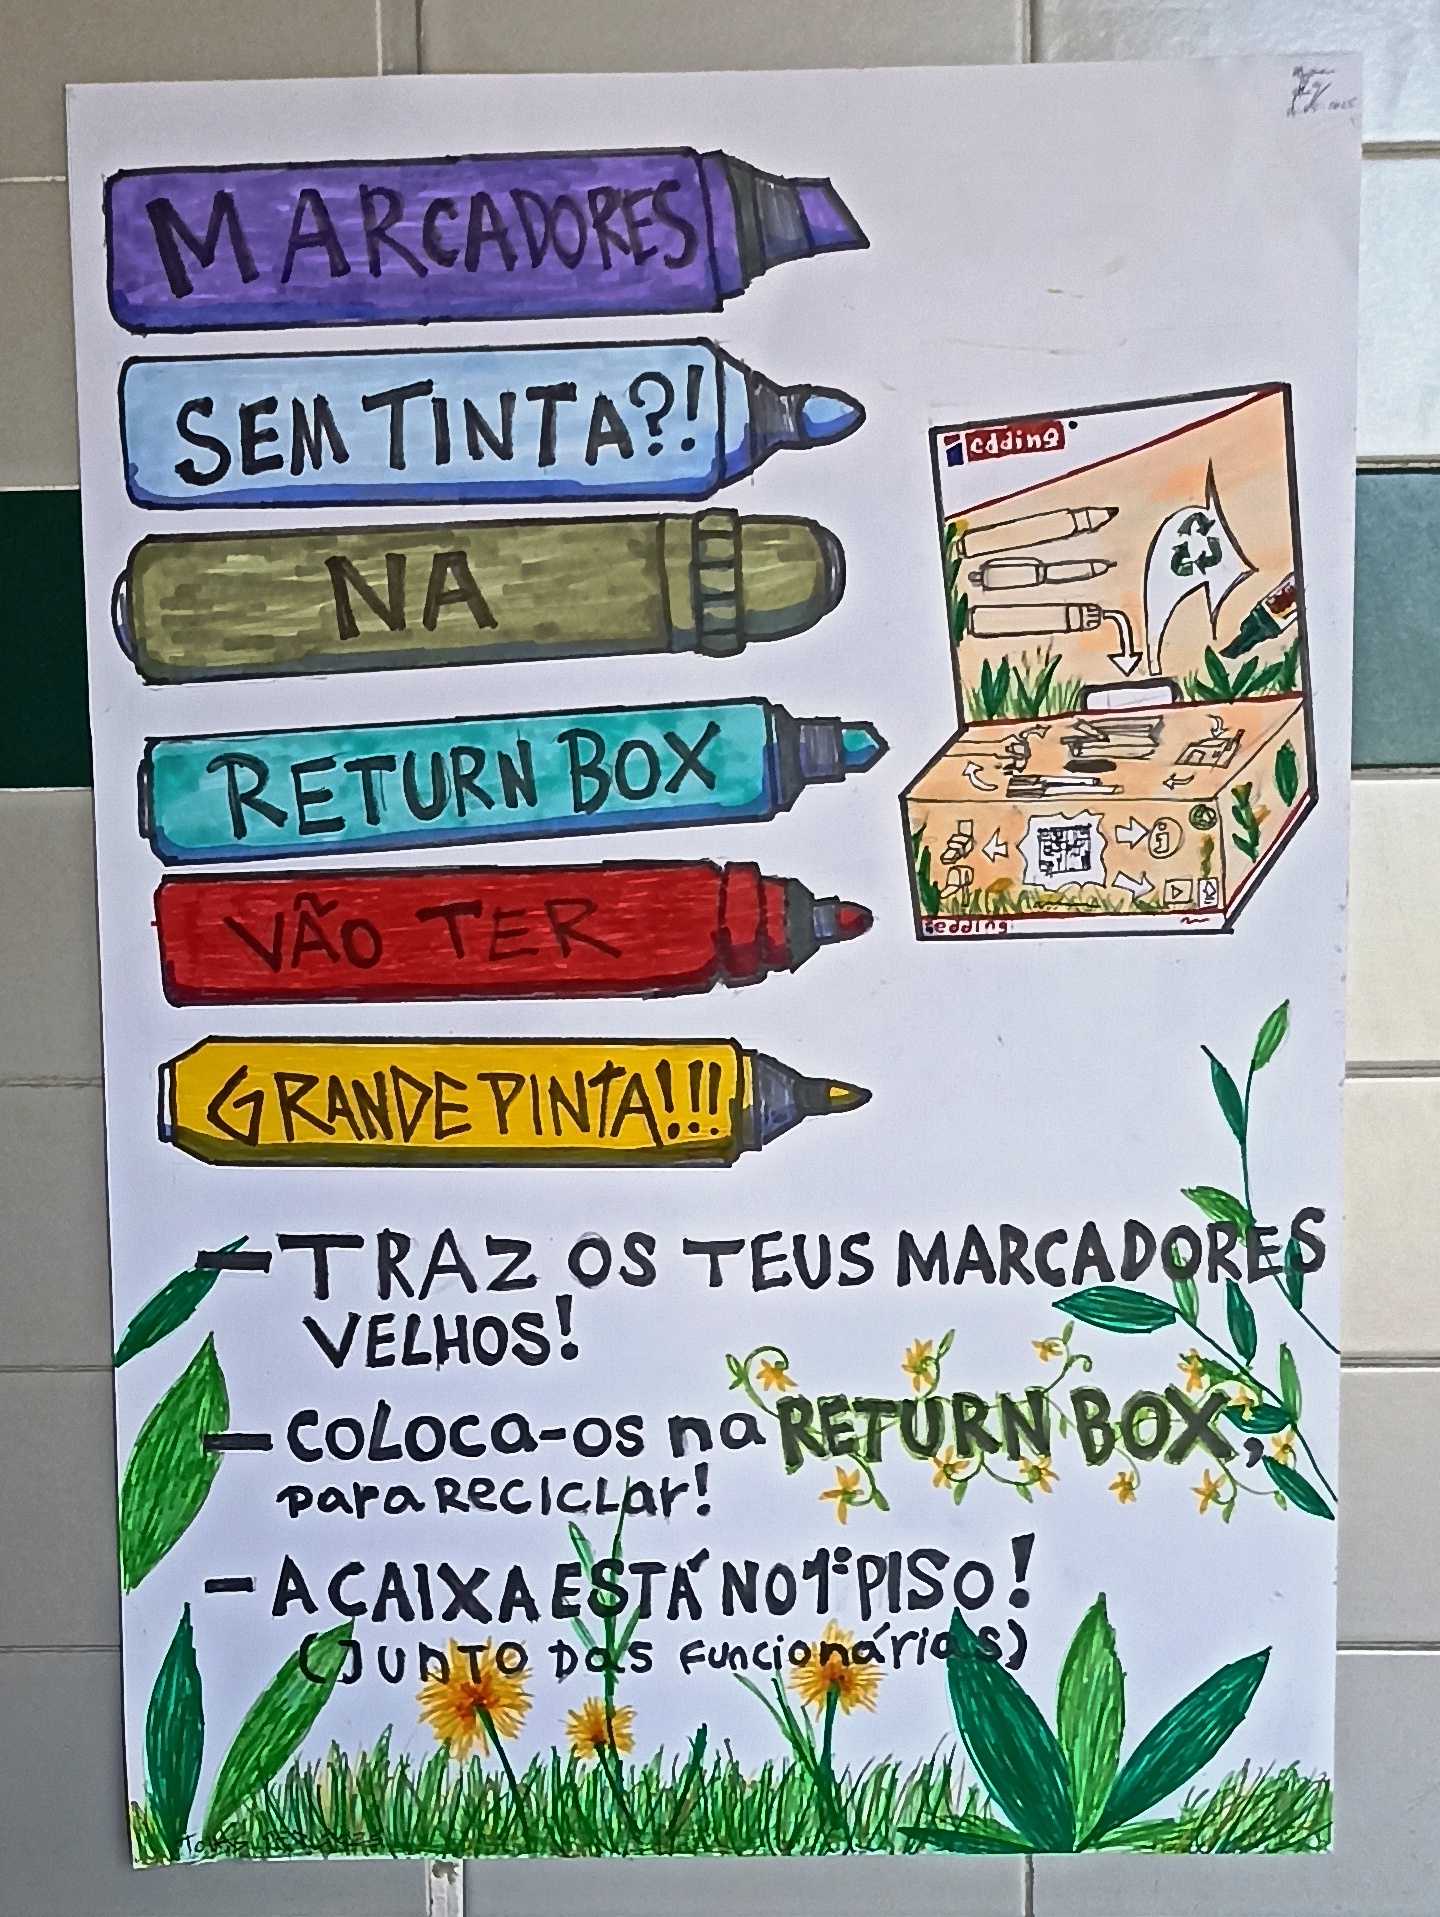 MARCADORES
SEM TINTA?!
NA
RETURN BOX
VÃO TER
GRANDE PINTA!!!
edding
edding
— TRAZ OS TEUS MARCADORES
VELHOS!
— COLOCA-OS na RETURN BOX,
para RECICLar!
— A CAIXA ESTÁ NO 1º PISO!
(JUNTO Das Funcionárias)